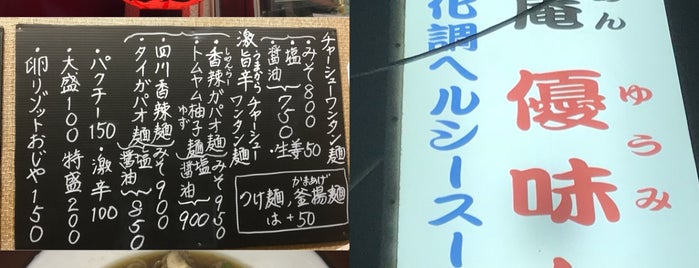 チャーシューワンタン麺
・みそ800
・塩
・醤油
750
・生姜50
激旨辛チャーシューワンタン麺
うまから
・香辣ガパオ麺
しゃんらー
・トムヤム柚子麺
ゆず
みそ950
塩
醤油
900
・四川香辣麺
・タイガパオ麺
みそ900
塩
醤油
850
・パクチー150
・激辛100
・大盛100
特盛200
・卵リゾットおじや150
かまあげ
つけ麺、釜揚麺
は+50
庵優味
あん
ゆうみ
花調ヘルシースー